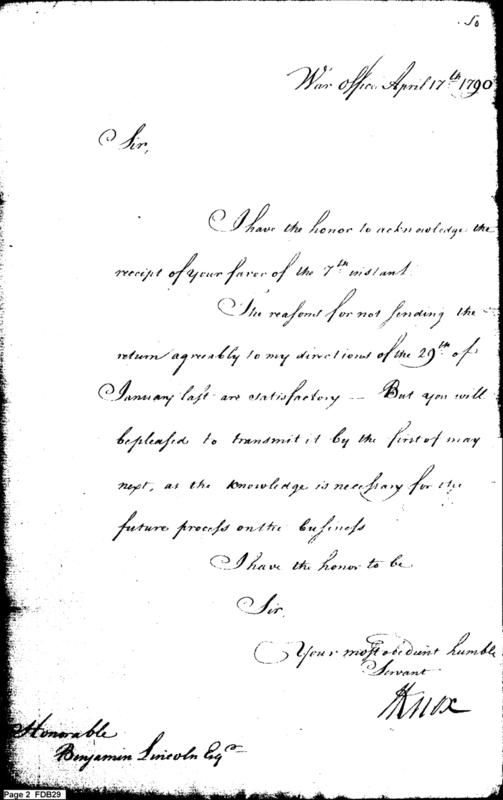 50
War office April 17th 1790
Sir,
I have the honor to acknowledge the
receipt of your favor of the 7th instant.
The reasons for not sending the
return agreeably to my directions of the 29th of
January last are satisfactory — But you will
be pleased to transmit it by the first of may
next, as the knowledge is necessary for the
future process on the business
I have the honor to be
Sir.
Your most obedient humble
Servant
HKnox
Honorable
Benjamin Lincoln Esqr
Page 2 FDB29